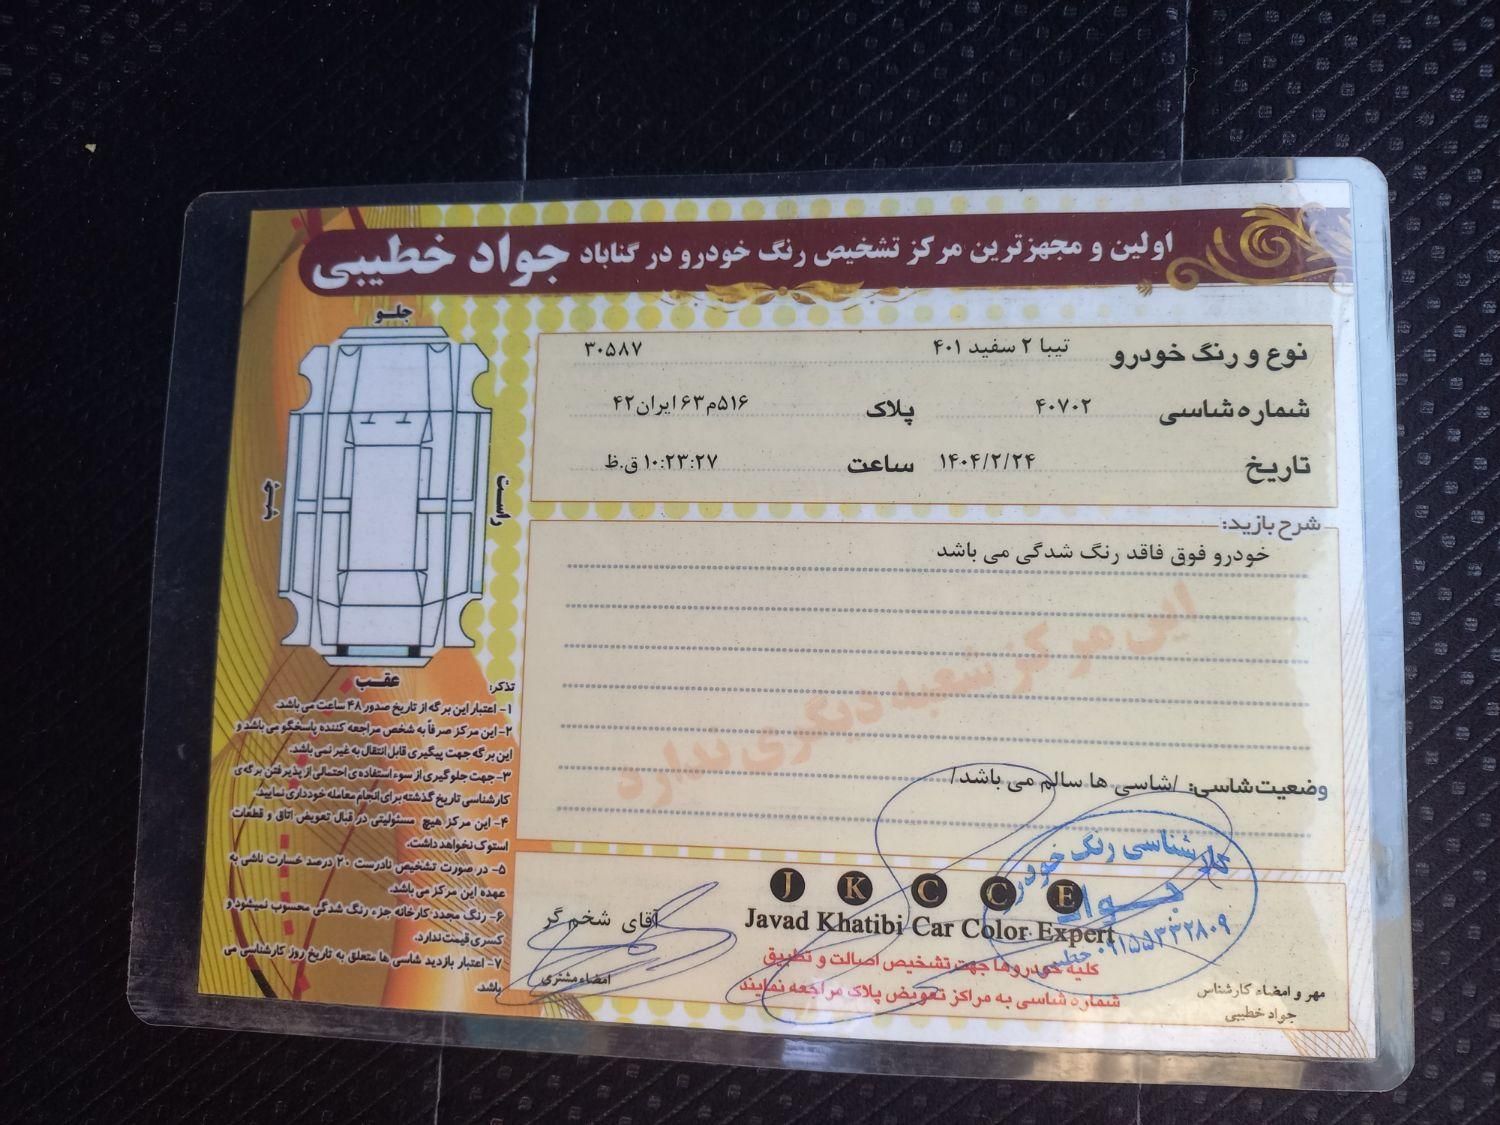 اولین و مجهزترین مرکز تشخیص رنگ خودرو در گناباد جواد خطیبی
نوع و رنگ خودرو تیبا ۲ سفید ۴۰۱ ۳۰۵۸۷
شماره شاسی ۴۰۷۰۲ پلاک ۵۱۶م۶۳ ایران۴۲
تاریخ ۱۴۰۴/۲/۲۴ ساعت ۱۰:۲۳:۲۷ ق.ظ
جلو
راست
چپ
عقب
شرح بازدید:
خودرو فوق فاقد رنگ شدگی می باشد
این مرکز شعبه دیگری ندارد
وضعیت شاسی: /شاسی ها سالم می باشد/
تذکر:
۱- اعتبار این برگه از تاریخ صدور ۴۸ ساعت می باشد.
۲- این مرکز صرفاً به شخص مراجعه کننده پاسخگو می باشد و
این برگه جهت پیگیری قابل انتقال به غیر نمی باشد.
۳- جهت جلوگیری از سوء استفاده ی احتمالی از پذیرفتن برگه ی
کارشناسی تاریخ گذشته برای انجام معامله خودداری نمایید.
۴- این مرکز هیچ مسئولیتی در قبال تعویض اتاق و قطعات
استوک نخواهد داشت.
۵- در صورت تشخیص نادرست ۲۰ درصد خسارت ناشی به
عهده این مرکز می باشد.
۶- رنگ مجدد کارخانه جزء رنگ شدگی محسوب نمیشود و
کسری قیمت ندارد.
۷- اعتبار بازدید شاسی ها متعلق به تاریخ روز کارشناسی می
باشد.
آقای شخم گر
امضاء مشتری
J K C C E
Javad Khatibi Car Color Expert
کلیه خودروها جهت تشخیص اصالت و تطبیق
شماره شاسی به مراکز تعویض پلاک مراجعه نمایند
کارشناسی رنگ خودرو
جواد
۰۹۱۵۵۳۳۲۸۰۹
خطیبی
مهر و امضاء کارشناس
جواد خطیبی